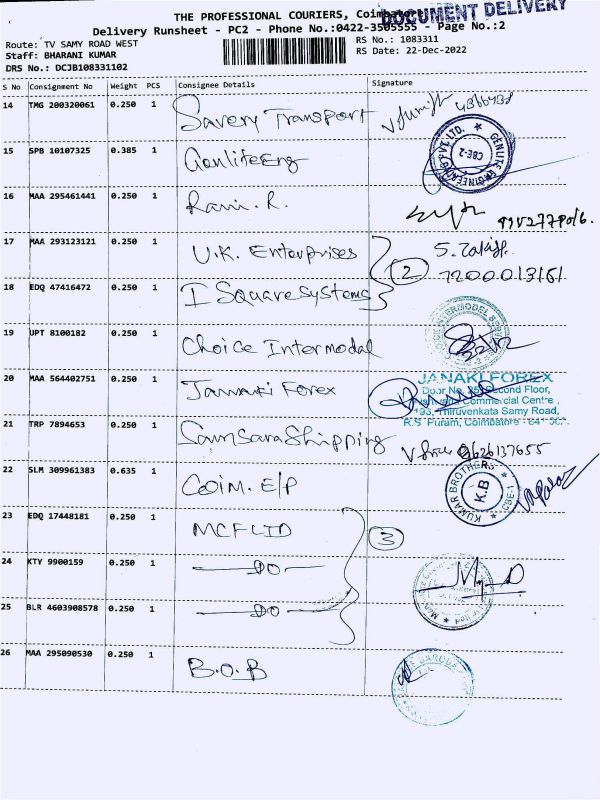 THE PROFESSIONAL COURIERS, Coimbatore
DOCUMENT DELIVERY
Delivery Runsheet - PC2 - Phone No.:0422-3505555 - Page No.:2
Route: TV SAMY ROAD WEST
RS No.: 1083311
Staff: BHARANI KUMAR
RS Date: 22-Dec-2022
DRS No.: DCJB108331102
S No Consignment No Weight PCS Consignee Details Signature
14 TMG 200320061 0.250 1 Savery Transport
15 SPB 10107325 0.385 1 GenlifeEng
GENLITE ENGINEERING PVT. LTD. CBE-2
16 MAA 295461441 0.250 1 Rani. R.
17 MAA 293121121 0.250 1 U.K. Enterprises
2 7200013161
18 EDQ 47416472 0.250 1 I Square Systems
19 UPT 8100182 0.250 1 Choice Intermodal
20 MAA 564402751 0.250 1 Janaki Forex
JANAKI FOREX
Second Floor,
Commercial Centre,
193, Thiruvenkata Samy Road,
R.S. Puram, Coimbatore - 641
21 TRP 7894653 0.250 1 Samsara Shipping 9626137655
22 SLM 309961383 0.635 1 Coim. E/P
KUMAR BROTHERS CBE-1 K.B
23 EDQ 17448181 0.250 1 MCFLTD 3
24 KTY 9900159 0.250 1 DO
25 BLR 4603908578 0.250 1 DO
26 MAA 295090530 0.250 1 B.O.B